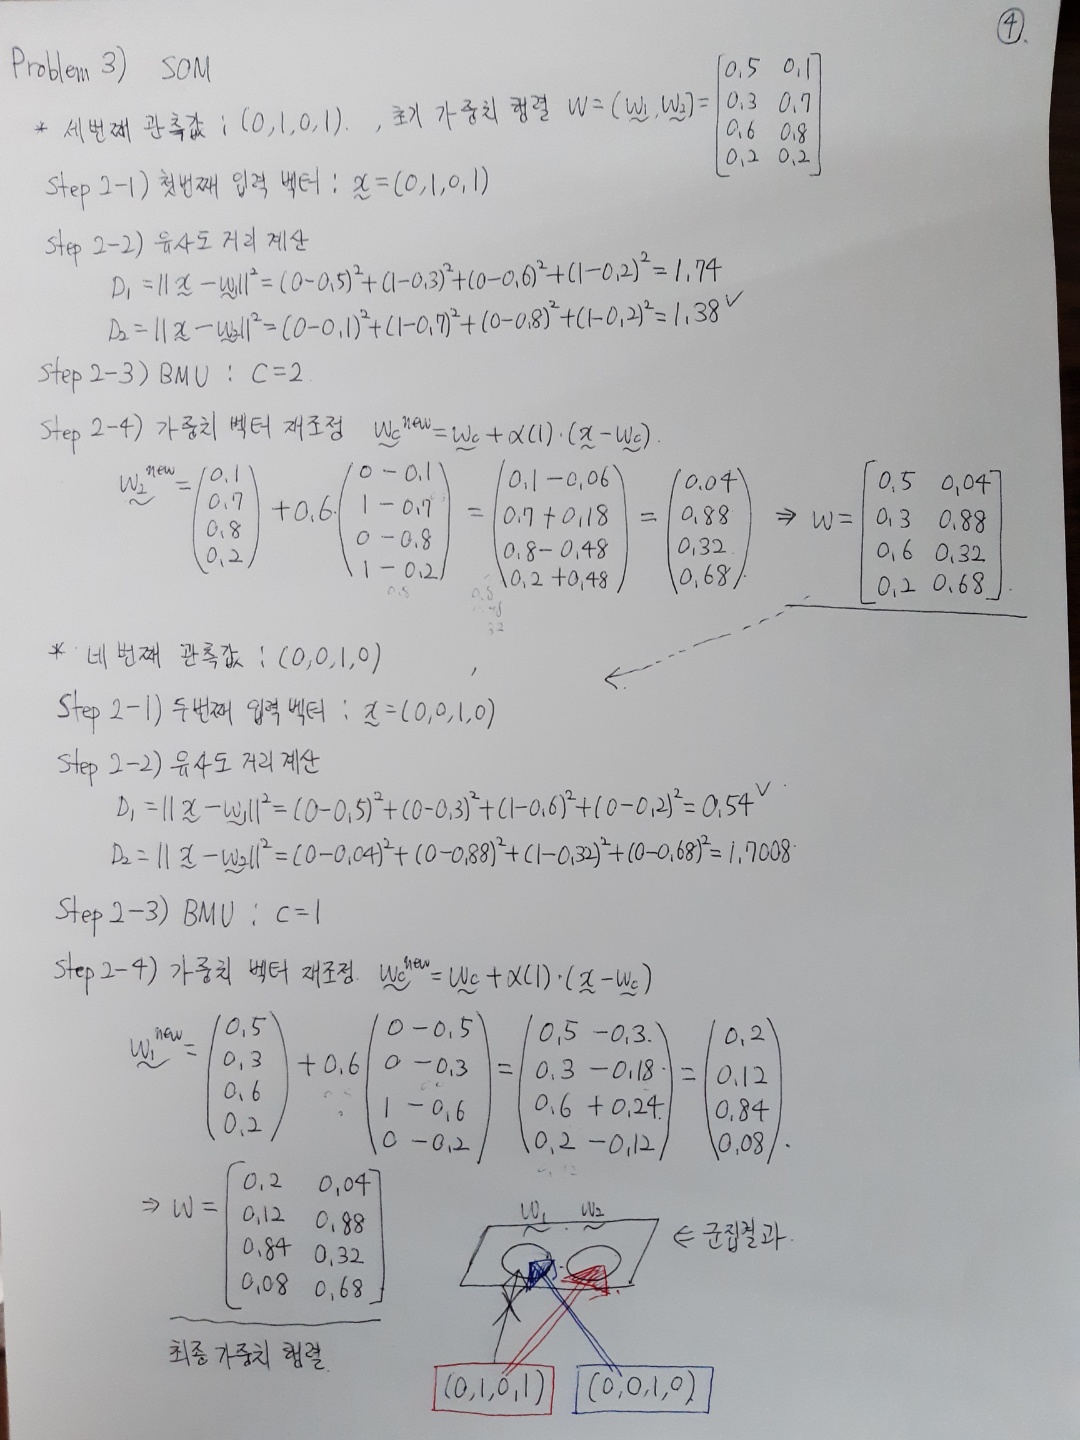 ④.
Problem 3) SOM
* 세번째 관측값 : (0,1,0,1). , 초기 가중치 행렬 W=(w₁, w₂)= [0.5 0.1
0.3 0.7
0.6 0.8
0.2 0.2]
Step 2-1) 첫번째 입력 벡터 : x=(0,1,0,1)
Step 2-2) 유사도 거리 계산
D₁ = ||x-w₁||²=(0-0.5)²+(1-0.3)²+(0-0.6)²+(1-0.2)²=1.74
D₂ = ||x-w₂||²=(0-0.1)²+(1-0.7)²+(0-0.8)²+(1-0.2)²=1.38 ✓
Step 2-3) BMU : C=2.
Step 2-4) 가중치 벡터 재조정 w_c^new = w_c + α(1)·(x-w_c).
w₂^new = (0.1 0.7 0.8 0.2) + 0.6·(0-0.1 1-0.7 0-0.8 1-0.2) = (0.1-0.06 0.7+0.18 0.8-0.48 0.2+0.48) = (0.04 0.88 0.32 0.68) ⇒ W = [0.5 0.04
0.3 0.88
0.6 0.32
0.2 0.68].
* 네번째 관측값 : (0,0,1,0)
Step 2-1) 두번째 입력벡터 : x=(0,0,1,0)
Step 2-2) 유사도 거리계산
D₁ = ||x-w₁||²=(0-0.5)²+(0-0.3)²+(1-0.6)²+(0-0.2)²=0.54 ✓
D₂ = ||x-w₂||²=(0-0.04)²+(0-0.88)²+(1-0.32)²+(0-0.68)²=1.7008
Step 2-3) BMU : C=1
Step 2-4) 가중치 벡터 재조정. w_c^new = w_c + α(1)·(x-w_c)
w₁^new = (0.5 0.3 0.6 0.2) + 0.6 (0-0.5 0-0.3 1-0.6 0-0.2) = (0.5-0.3 0.3-0.18 0.6+0.24 0.2-0.12) = (0.2 0.12 0.84 0.08).
⇒ W = [0.2 0.04
0.12 0.88
0.84 0.32
0.08 0.68]
최종 가중치 행렬.
w₁ w₂
⇐ 군집결과.
(0,1,0,1) (0,0,1,0)